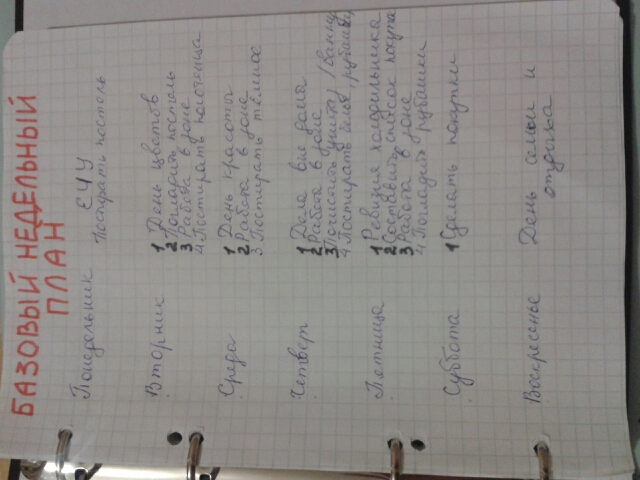 БАЗОВЫЙ НЕДЕЛЬНЫЙ
ПЛАН
Понедельник ЕЧУ
Постирать постель
Вторник 1 День цветов
2 Погладить постель
3 Работа в зоне
4. Постирать полотенца
Среда 1 День красоты
2 Работа в зоне
3 Постирать тёмное
Четверг 1 Дела вне дома
2 Работа в зоне
3 Почистить унитаз/ванну
4. Постирать белое, рубашки
Пятница 1 Ревизия холодильника
2 Составить список покупок
3 Работа в зоне
4 Погладить рубашки
Суббота 1 Сделать покупки
Воскресенье День семьи и
отдыха